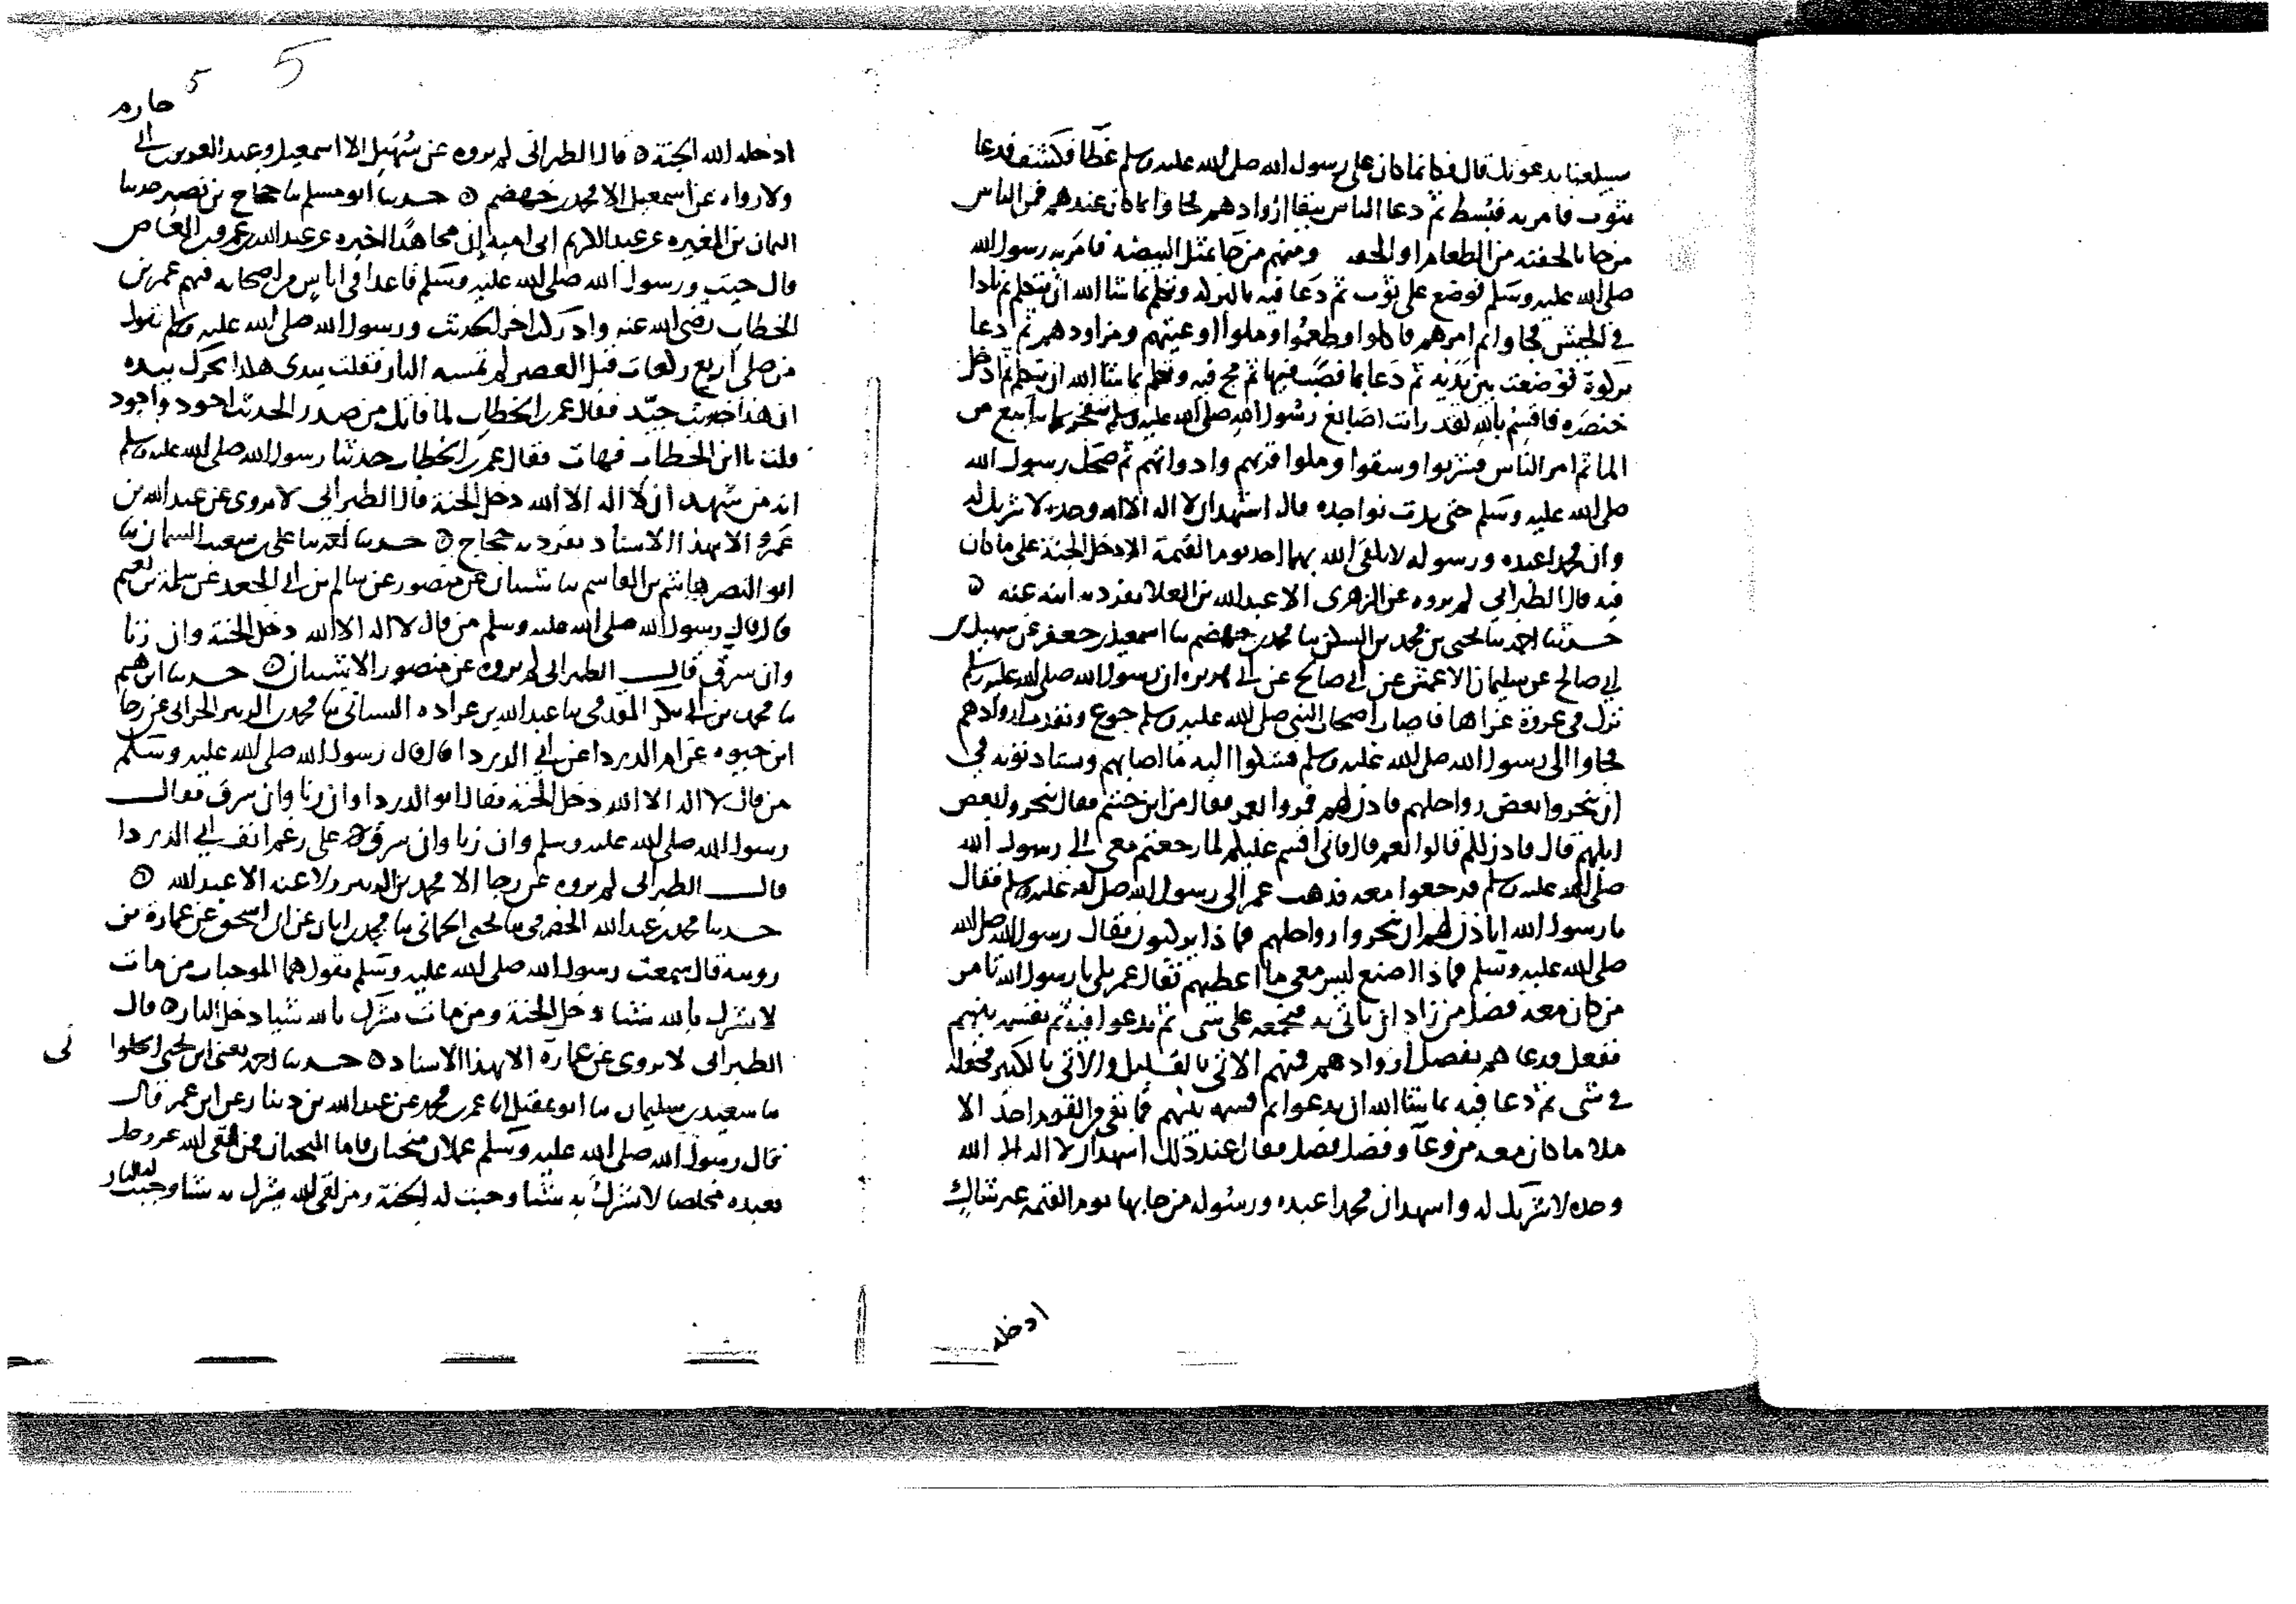 سيبلغنا بدعوتك قال فكانما كان على رسول الله صلى الله عليه وسلم غطا فكشف فدعا
بثوب فامر به فبسط ثم دعا الناس ببقايا ازوادهم فجاوا بما كان عندهم فمن الناس
من جا بالحفنه من الطعام او الحثيه ومنهم من جا بمثل البيضه فامر به رسول الله
صلى الله عليه وسلم فوضع على ثوب ثم دعا فيه بالبركه وتكلم بما شا الله ان يتكلم ثم نادا
في الجيش فجاوا ثم امرهم فاكلوا وطعموا وملوا اوعيتهم ومزاودهم ثم دعا
بركوة فوضعت بين يديه ثم دعا بما فصب فيها ثم مج فيه وتكلم بما شا الله ان يتكلم ثم ادخل
خنصره فاقسم بالله لقد رايت اصابع رسول الله صلى الله عليه وسلم تنفجر ينابيع من
الما ثم امر الناس فشربوا وسقوا وملوا قربهم وادواتهم ثم ضحك رسول الله
صلى الله عليه وسلم حتى بدت نواجده قال اشهد ان لا اله الا الله وحده لا شريك له
وان محمدا عبده ورسوله لا يلقى الله بهما احد يوم القيمة الا دخل الجنة على ما كان
فيه قال الطبراني لم يروه عن الزهرى الا عبد الله بن العلا تفرد به ابنه عنه ه
حدثنا احمد بن يحيى بن محمد بن السكن ثنا محمد بن جهضم ثنا اسمعيل بن جعفر عن سهيل بن
ابي صالح عن سليمان الاعمش عن ابي صالح عن ابي هريره ان رسول الله صلى الله عليه وسلم
نزل في غزوة غزاها فاصاب اصحاب النبي صلى الله عليه وسلم جوع ونفدت ازوادهم
فجاوا الى رسول الله صلى الله عليه وسلم فشكوا اليه ما اصابهم وستاذنونه في
ان ينحروا بعض رواحلهم فاذن لهم فمروا بعمر فقال من اين جئتم فقال ننحر بعض
ابلهم قال فاذن لكم قالوا نعم قال فاني اقسم عليكم لما رجعتم معي الى رسول الله
صلى الله عليه وسلم فرجعوا معه فذهب عمر الى رسول الله صلى الله عليه وسلم فقال
يا رسول الله اتاذن لهم ان ينحروا رواحلهم فما ذا يركبون فقال رسول الله صلى الله
صلى الله عليه وسلم فما ذا اصنع ليس معي ما اعطيهم فقال عمر بلى يا رسول الله تامر
من كان معه فضل من زاد ان ياتي به فتجمعه على شى ثم تدعوا فيه ثم تقسمه بينهم
ففعل فدعاهم بفضل ازوادهم فمنهم الاتي بالقليل والاتي بالكثير فجعله
في شى ثم دعا فيه بما شا الله ان يدعوا ثم قسمه بينهم فما بقي من القوم احد الا
ملا ما كان معه من وعا وفضل فضل فقال عند ذلك اشهد ان لا اله الا الله
وحده لا شريك له واشهد ان محمدا عبده ورسوله من جا بها يوم القيمه غير شاك
ادخله
5
5
ادخله الله الجنة ه قال الطبراني لم يروه عن سهيل الا اسمعيل وعبد العزيز بن ابي
حازم
ولا رواه عن اسمعيل الا محمد بن جهضم ه حدثنا ابو مسلم ثنا حجاج بن نصير حدثنا
اليمان بن المغيره عن عبد الكريم ابي اميه ان مجاهدا اخبره عن عبد الله بن عمرو بن العاص
قال جيت ورسول الله صلى الله عليه وسلم قاعدا في اناس من اصحابه فيهم عمر بن
الخطاب رضى الله عنه وادركت اخر الحديث ورسول الله صلى الله عليه وسلم يقول
من صلى اربع ركعات قبل العصر لم تمسه النار فقلت بيدى هكذا يحرك بيده
ان هذا حديث جيد فقال عمر بن الخطاب لما فاتك من صدر الحديث اجود واجود
قلت يا ابن الخطاب فهات فقال عمر بن الخطاب حدثنا رسول الله صلى الله عليه وسلم
انه من شهد ان لا اله الا الله دخل الجنة قال الطبراني لا يروى عن عبد الله بن
عمرو الا بهذا الاسناد تفرد به حجاج ه حدثنا احمد ثنا على بن سعيد السمان ثنا
ابو النضر هاشم بن القاسم ثنا شيبان عن منصور عن سالم بن ابي الجعد عن سلمة بن نعيم
قال قال رسول الله صلى الله عليه وسلم من قال لا اله الا الله دخل الجنة وان زنا
وان سرق قال الطبراني لم يروه عن منصور الا شيبان ه حدثنا ابراهيم
ثنا محمد بن ابي بكر المقدمي ثنا عبد الله بن عراده الشيباني ثنا محمد بن الزبير الحراني عن رجا
ابن حيوه عن ام الدردا عن ابي الدردا قال قال رسول الله صلى الله عليه وسلم
من قال لا اله الا الله دخل الجنة فقال ابو الدردا وان زنا وان سرق فقال
رسول الله صلى الله عليه وسلم وان زنا وان سرق على رغم انف ابي الدردا
قال الطبراني لم يروه عن رجا الا محمد بن الزبير ولا عنه الا عبد الله ه
حدثنا محمد بن عبد الله الحضرمي ثنا يحيى الحماني ثنا محمد بن ابان عن ابي اسحق عن عمارة بن
رويبه قال سمعت رسول الله صلى الله عليه وسلم يقول هما الموجبتان من مات
لا يشرك بالله شيئا دخل الجنة ومن مات يشرك بالله شيئا دخل النار ه قال
الطبراني لا يروى عن عمارة الا بهذا الاسناد ه حدثنا احمد يعني ابن يحيى الحلوا
ني
ثنا سعيد بن سليمان ثنا ابو عقيل ثنا عمر بن محمد عن عبد الله بن دينار عن ابن عمر قال
قال رسول الله صلى الله عليه وسلم عملان منجيان فاما المنجيان فمن لقي الله عز وجل
يعبده مخلصا لا يشرك به شيئا وجبت له الجنة ومن لقي الله يشرك به شيئا وجبت
له النار